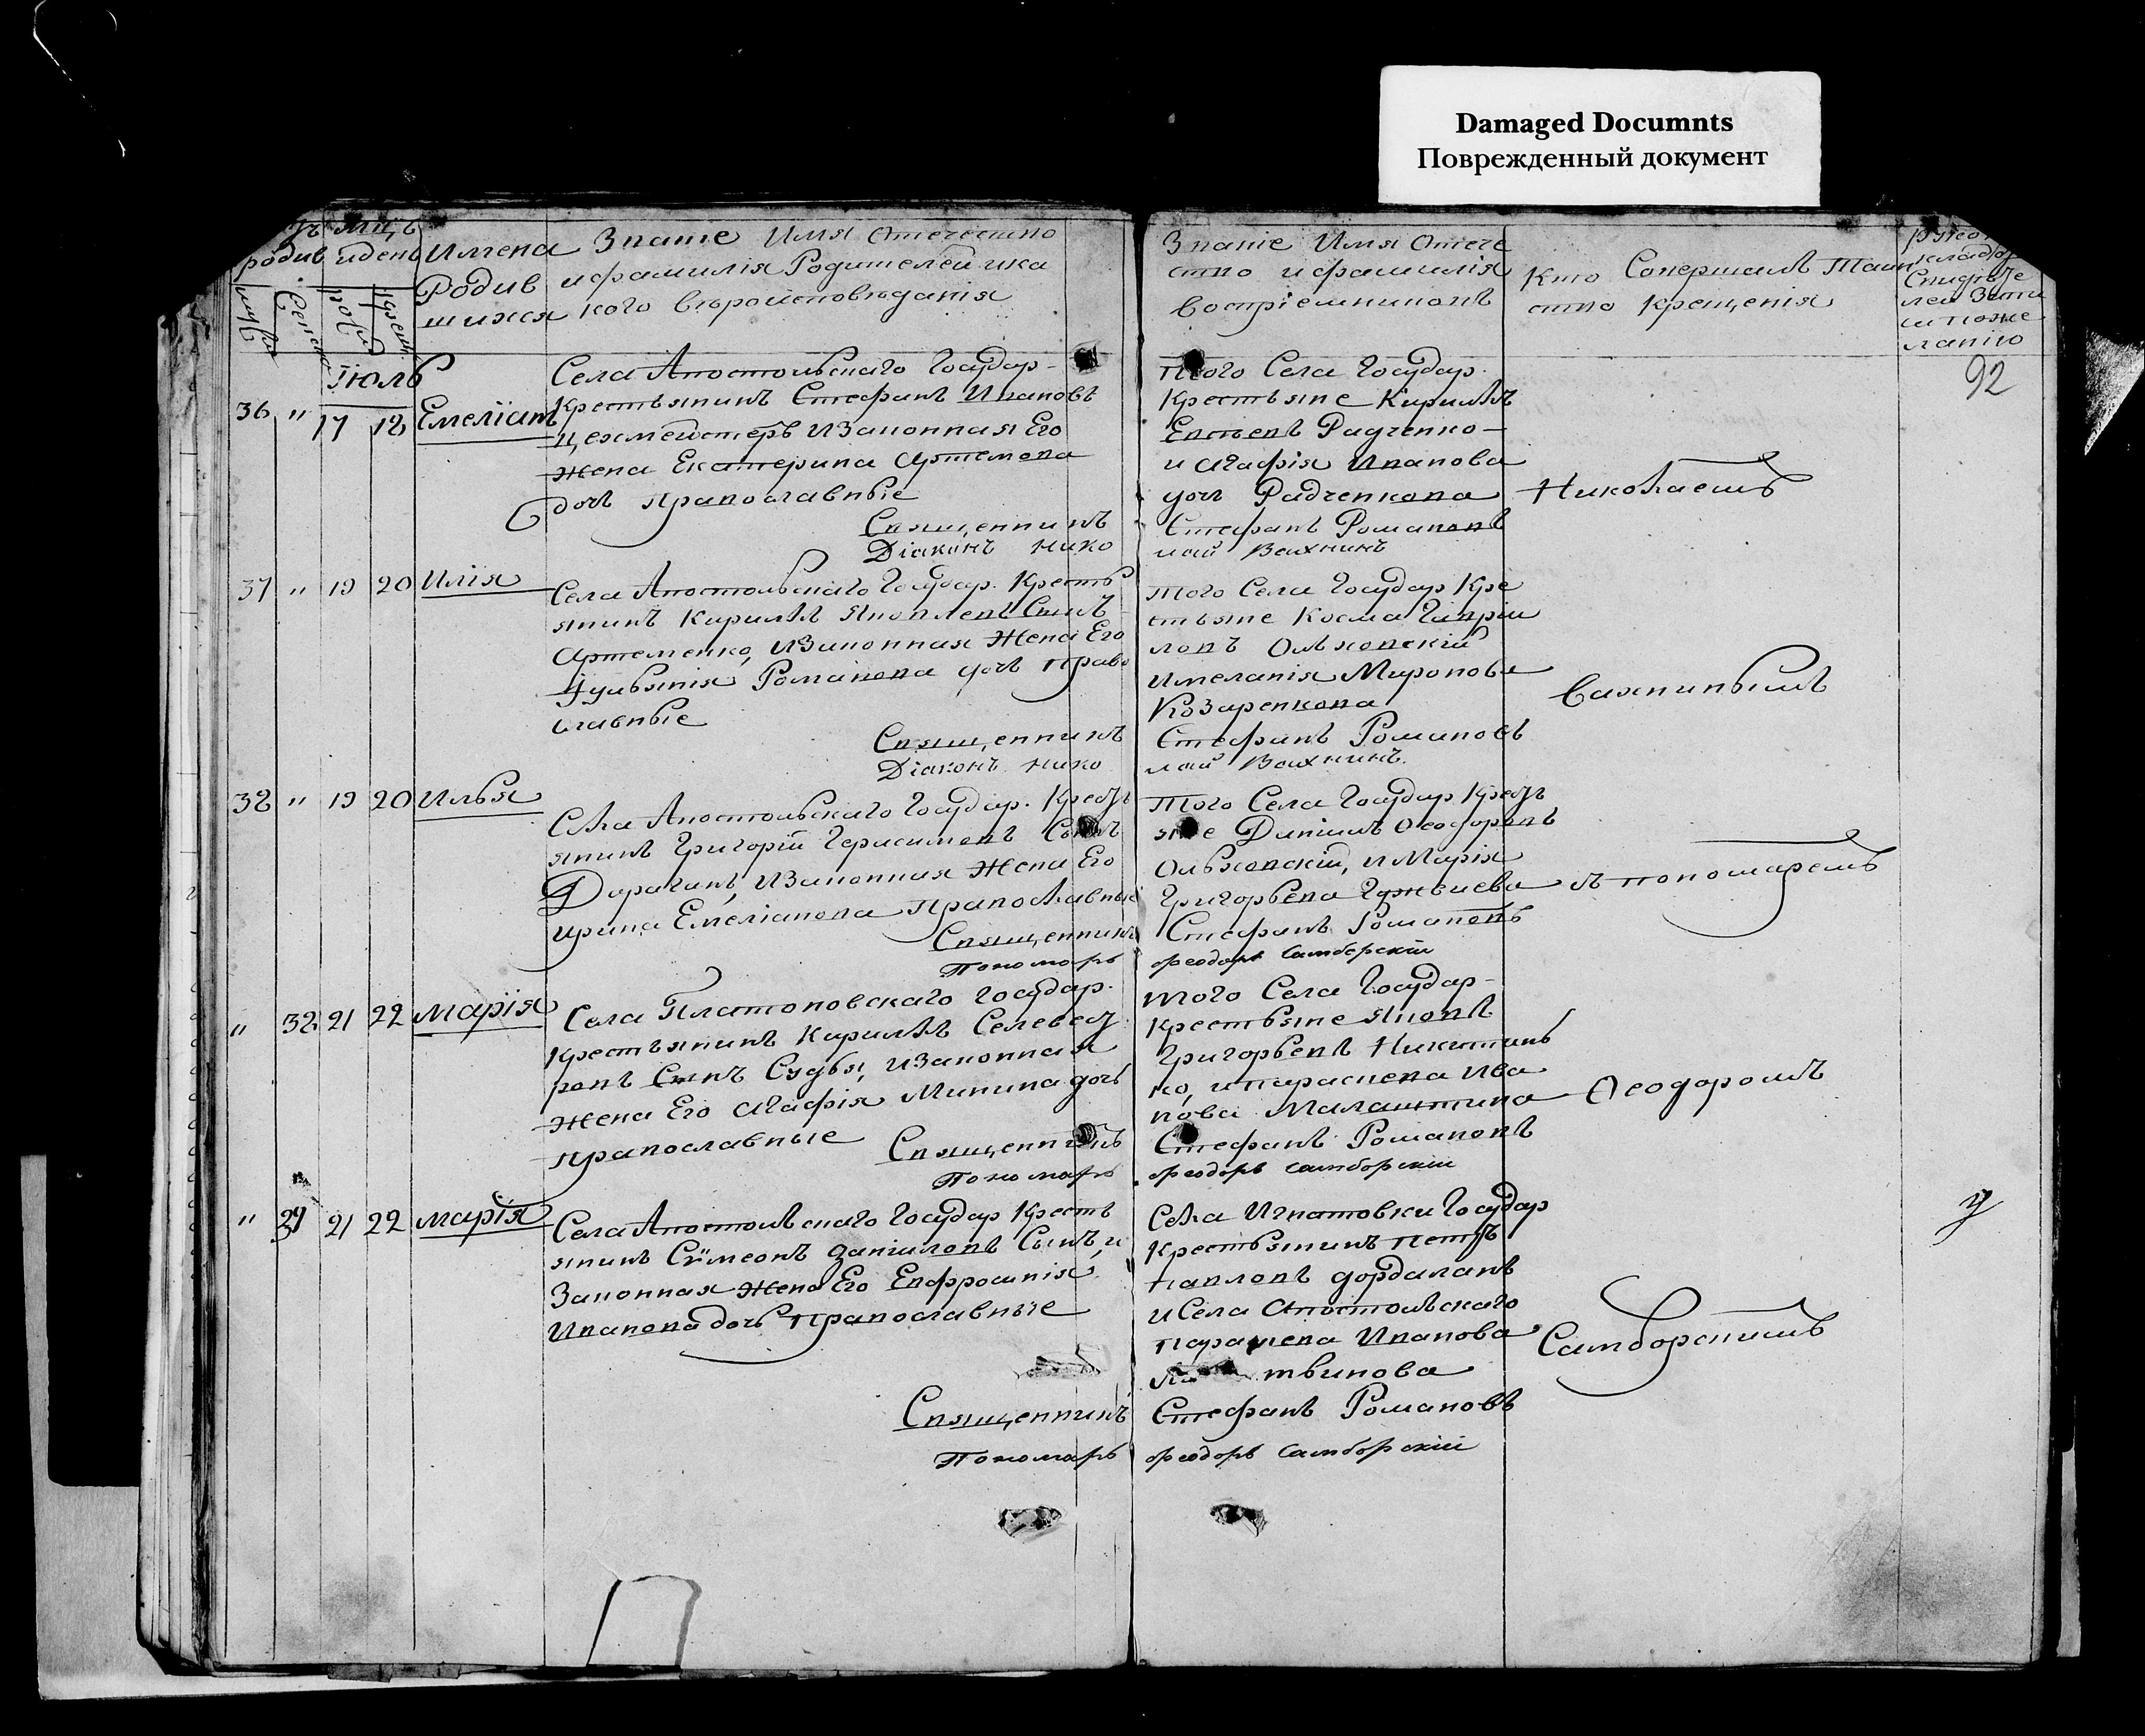 Damaged Documnts
Поврежденный документ
родив
мцъ
иденъ
Имена
Родив
шихся
Званіе Имя Отечество
и фамилія Родителей и ка
кого вероисповеданія
Званіе Имя Отече
ство и фамилія
воспріемниковъ
Кто Совершалъ Таин
ство крещенія
92
Іюль
36 " 17 18 Емеліанъ
Села Апостольскаго Государ-
крестьянинъ Стефанъ Ивановъ
цехмейстеръ и Законная Его
жена Екатерина Артемова
дочь православные
Священникъ
Діаконъ Нико
того Села Государ.
крестьяне Кириллъ
Евсеевъ Радченко
и Агафія Иванова
дочь Радченкова
Стефанъ Романовъ
лай Вахнинъ
Николаемъ
37 " 19 20 Илія
Села Апостольскаго Государ. Кресть
янинъ Кириллъ Яковлевъ Сынъ
Артеменко, и Законная Жена Его
Іульянія Романова дочь право
славные
Священникъ
Діаконъ Нико
того Села Государ Кре
стьяне Косма Гаврии
ловъ Ольховскій
и Меланія Миронова
Козаренкова
Стефанъ Романовъ
лай Вахнинъ.
Вахнинымъ
38 " 19 20 Илья
Села Апостольскаго Государ. Крест
янинъ Григорій Герасимовъ Сынъ
Дараганъ, и Законная Жена Его
Ирина Емеліанова православные
Священникъ
Пономарь
того Села Государ Крест
яне Даніилъ Феодоровъ
Ольховскій, и Марія
Григорьева
Стефанъ Романовъ
Феодоръ Самборскій
съ пономаремъ
" 38 21 22 Марія
Села Платоновскаго государ.
крестьянинъ Кириллъ Селевест
ровъ Сынъ Судья, и Законная
жена Его Агафія Минина дочь
православные
Священникъ
Пономарь
того Села Государ-
крестьяне Яковъ
Григорьевъ Никитинъ
ко, и Параскева Ива
нова Малаштина
Стефанъ Романовъ
Феодоръ Самборскій
Феодоромъ
" 39 21 22 Марія
Села Апостольскаго Государ Кресть
янинъ Сѵмеонъ Даніиловъ Сынъ, и
Законная жена Его Евфросинія
Иванова дочь православные
Священникъ
Пономарь
Села Игнатовки Государ
крестьянинъ Петръ
Павловъ Дордаланъ
и Села Апостольскаго
Параскева Иванова
твинова
Стефанъ Романовъ
Феодоръ Самборскій
Самборскимъ